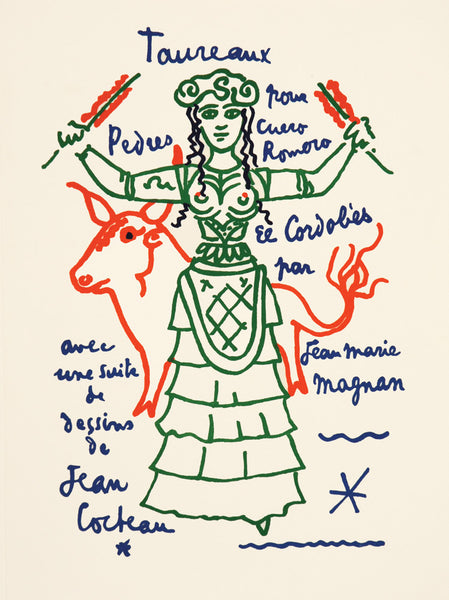 Taureaux
pour
Pedres Curro
Romero
El Cordobés
par
Jean Marie
Magnan
avec
une suite
de
dessins
de
Jean
Cocteau